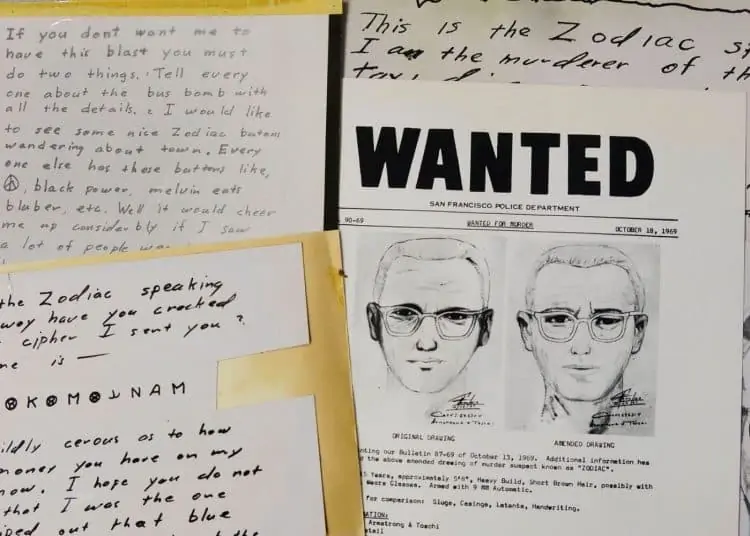 If you dont want me to
have this blast you must
do two things. 1 Tell every
one about the bus bomb with
all the details. 2 I would like
to see some nice Zodiac butons
wandering about town. Every
one else has these buttons like,
☮, black power, melvin eats
bluber, etc. Well it would cheer
me up considerbly if I saw
a lot of people
This is the Zodiac
I am the murderer of
the Zodiac speaking
way have you cracked
cipher I sent you?
is —
K M NAM
cerous as to how
money you have on my
now. I hope you do not
that I was the one
out that blue
WANTED
SAN FRANCISCO POLICE DEPARTMENT
90-69 WANTED FOR MURDER OCTOBER 18, 1969
ORIGINAL DRAWING AMENDED DRAWING
our Bulletin 87-69 of October 13, 1969. Additional information has
the above amended drawing of murder suspect known as "ZODIAC".
Years, approximately 5'8", Heavy Build, Short Brown Hair, possibly with
Glasses. Armed with 9 MM Automatic.
for comparison: Slugs, Casings, Latents, Handwriting.
Armstrong & Toschi